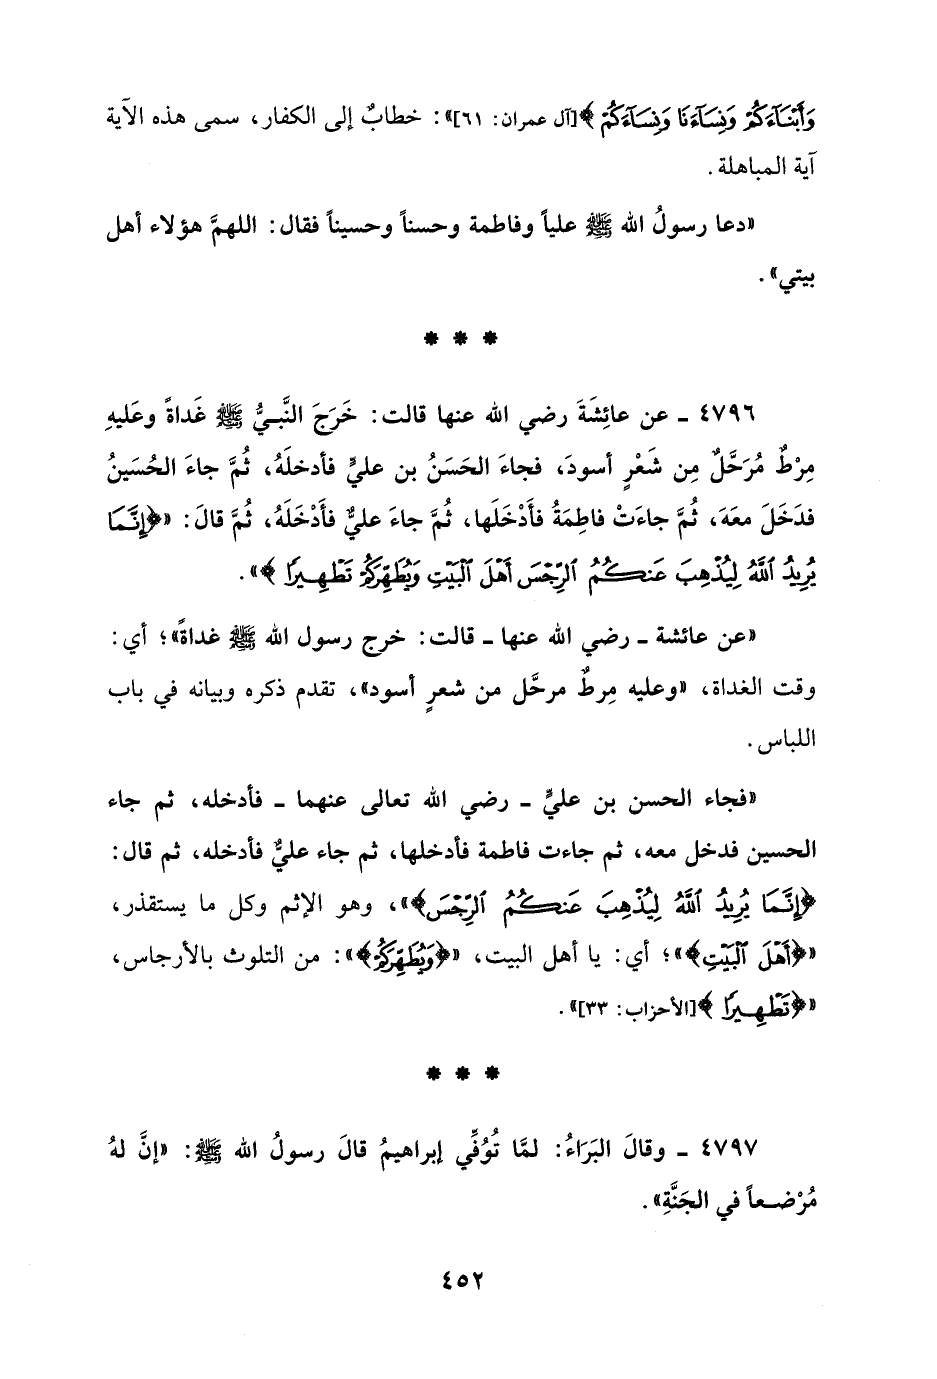 وَأَبْنَاءَكُمْ وَنِسَاءَنَا وَنِسَاءَكُمْ﴾[آل عمران: ٦١]»: خطابٌ إلى الكفار، سمى هذه الآية
آية المباهلة.
«دعا رسولُ الله ﷺ علياً وفاطمة وحسناً وحسيناً فقال: اللهمَّ هؤلاء أهل
بيتي».
* * *
٤٧٩٦ ـ عن عائِشَةَ رضي الله عنها قالت: خَرَجَ النَّبيُّ ﷺ غَداةً وعَليهِ
مِرْطٌ مُرَحَّلٌ مِن شَعْرٍ أسودَ، فجاءَ الحَسَنُ بن عليٍّ فأدخلَهُ، ثُمَّ جاءَ الحُسَينُ
فدَخَلَ معَهَ، ثُمَّ جاءَتْ فاطِمَةُ فأَدْخَلَها، ثُمَّ جاءَ عليٌّ فأَدْخَلَهُ، ثُمَّ قالَ: «﴿إِنَّمَا
يُرِيدُ ٱللَّهُ لِيُذْهِبَ عَنكُمُ ٱلرِّجْسَ أَهْلَ ٱلْبَيْتِ وَيُطَهِّرَكُمْ تَطْهِيرًا﴾».
«عن عائشة ـ رضي الله عنها ـ قالت: خرج رسول الله ﷺ غداةً»؛ أي:
وقت الغداة، «وعليه مِرطٌ مرحَّل من شعرٍ أسود»، تقدم ذكره وبيانه في باب
اللباس.
«فجاء الحسن بن عليٍّ ـ رضي الله تعالى عنهما ـ فأدخله، ثم جاء
الحسين فدخل معه، ثم جاءت فاطمة فأدخلها، ثم جاء عليٌّ فأدخله، ثم قال:
﴿إِنَّمَا يُرِيدُ ٱللَّهُ لِيُذْهِبَ عَنكُمُ ٱلرِّجْسَ﴾»، وهو الإثم وكل ما يستقذر،
«﴿أَهْلَ ٱلْبَيْتِ﴾»؛ أي: يا أهل البيت، «﴿وَيُطَهِّرَكُمْ﴾»: من التلوث بالأرجاس،
«﴿تَطْهِيرًا﴾[الأحزاب: ٣٣]».
* * *
٤٧٩٧ ـ وقالَ البَرَاءُ: لمَّا تُوُفِّي إبراهيمُ قالَ رسولُ الله ﷺ: «إنَّ لهُ
مُرْضعاً في الجَنَّةِ».
٤٥٢